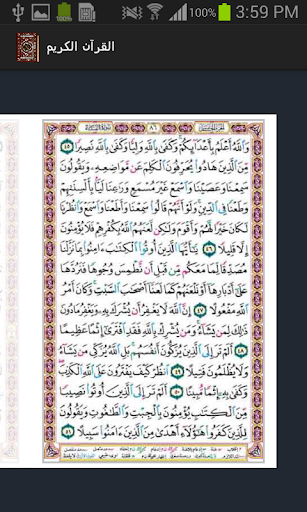 100%
3:59 PM
القرآن الكريم
٨٦
وَاللَّهُ أَعْلَمُ بِأَعْدَائِكُمْ وَكَفَىٰ بِاللَّهِ وَلِيًّا وَكَفَىٰ بِاللَّهِ نَصِيرًا ٤٥
مِّنَ الَّذِينَ هَادُوا يُحَرِّفُونَ الْكَلِمَ عَن مَّوَاضِعِهِ وَيَقُولُونَ
سَمِعْنَا وَعَصَيْنَا وَاسْمَعْ غَيْرَ مُسْمَعٍ وَرَاعِنَا لَيًّا بِأَلْسِنَتِهِمْ
وَطَعْنًا فِي الدِّينِ وَلَوْ أَنَّهُمْ قَالُوا سَمِعْنَا وَأَطَعْنَا وَاسْمَعْ وَانظُرْنَا
لَكَانَ خَيْرًا لَّهُمْ وَأَقْوَمَ وَلَٰكِن لَّعَنَهُمُ اللَّهُ بِكُفْرِهِمْ فَلَا يُؤْمِنُونَ
إِلَّا قَلِيلًا ٤٦ يَا أَيُّهَا الَّذِينَ أُوتُوا الْكِتَابَ آمِنُوا بِمَا نَزَّلْنَا
مُصَدِّقًا لِّمَا مَعَكُم مِّن قَبْلِ أَن نَّطْمِسَ وُجُوهًا فَنَرُدَّهَا
عَلَىٰ أَدْبَارِهَا أَوْ نَلْعَنَهُمْ كَمَا لَعَنَّا أَصْحَابَ السَّبْتِ وَكَانَ أَمْرُ
اللَّهِ مَفْعُولًا ٤٧ إِنَّ اللَّهَ لَا يَغْفِرُ أَن يُشْرَكَ بِهِ وَيَغْفِرُ مَا دُونَ
ذَٰلِكَ لِمَن يَشَاءُ وَمَن يُشْرِكْ بِاللَّهِ فَقَدِ افْتَرَىٰ إِثْمًا عَظِيمًا
٤٨ أَلَمْ تَرَ إِلَى الَّذِينَ يُزَكُّونَ أَنفُسَهُم بَلِ اللَّهُ يُزَكِّي مَن يَشَاءُ
وَلَا يُظْلَمُونَ فَتِيلًا ٤٩ انظُرْ كَيْفَ يَفْتَرُونَ عَلَى اللَّهِ الْكَذِبَ
وَكَفَىٰ بِهِ إِثْمًا مُّبِينًا ٥٠ أَلَمْ تَرَ إِلَى الَّذِينَ أُوتُوا نَصِيبًا
مِّنَ الْكِتَابِ يُؤْمِنُونَ بِالْجِبْتِ وَالطَّاغُوتِ وَيَقُولُونَ
لِلَّذِينَ كَفَرُوا هَٰؤُلَاءِ أَهْدَىٰ مِنَ الَّذِينَ آمَنُوا سَبِيلًا ٥١